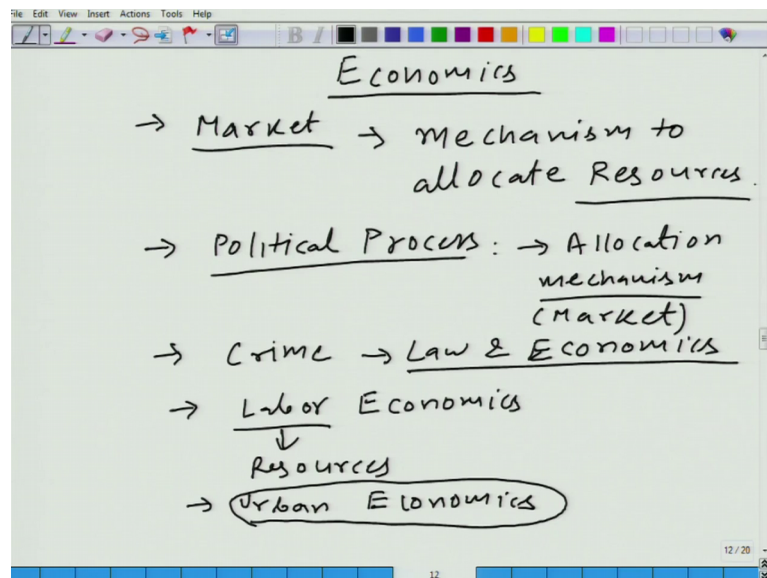 File Edit View Insert Actions Tools Help
B I
Economics
→ Market → Mechanism to
allocate Resources.
→ Political Process: → Allocation
mechanism
(Market)
→ Crime → Law & Economics
→ Labor Economics
↓
Resources
→ Urban Economics
12/20
12